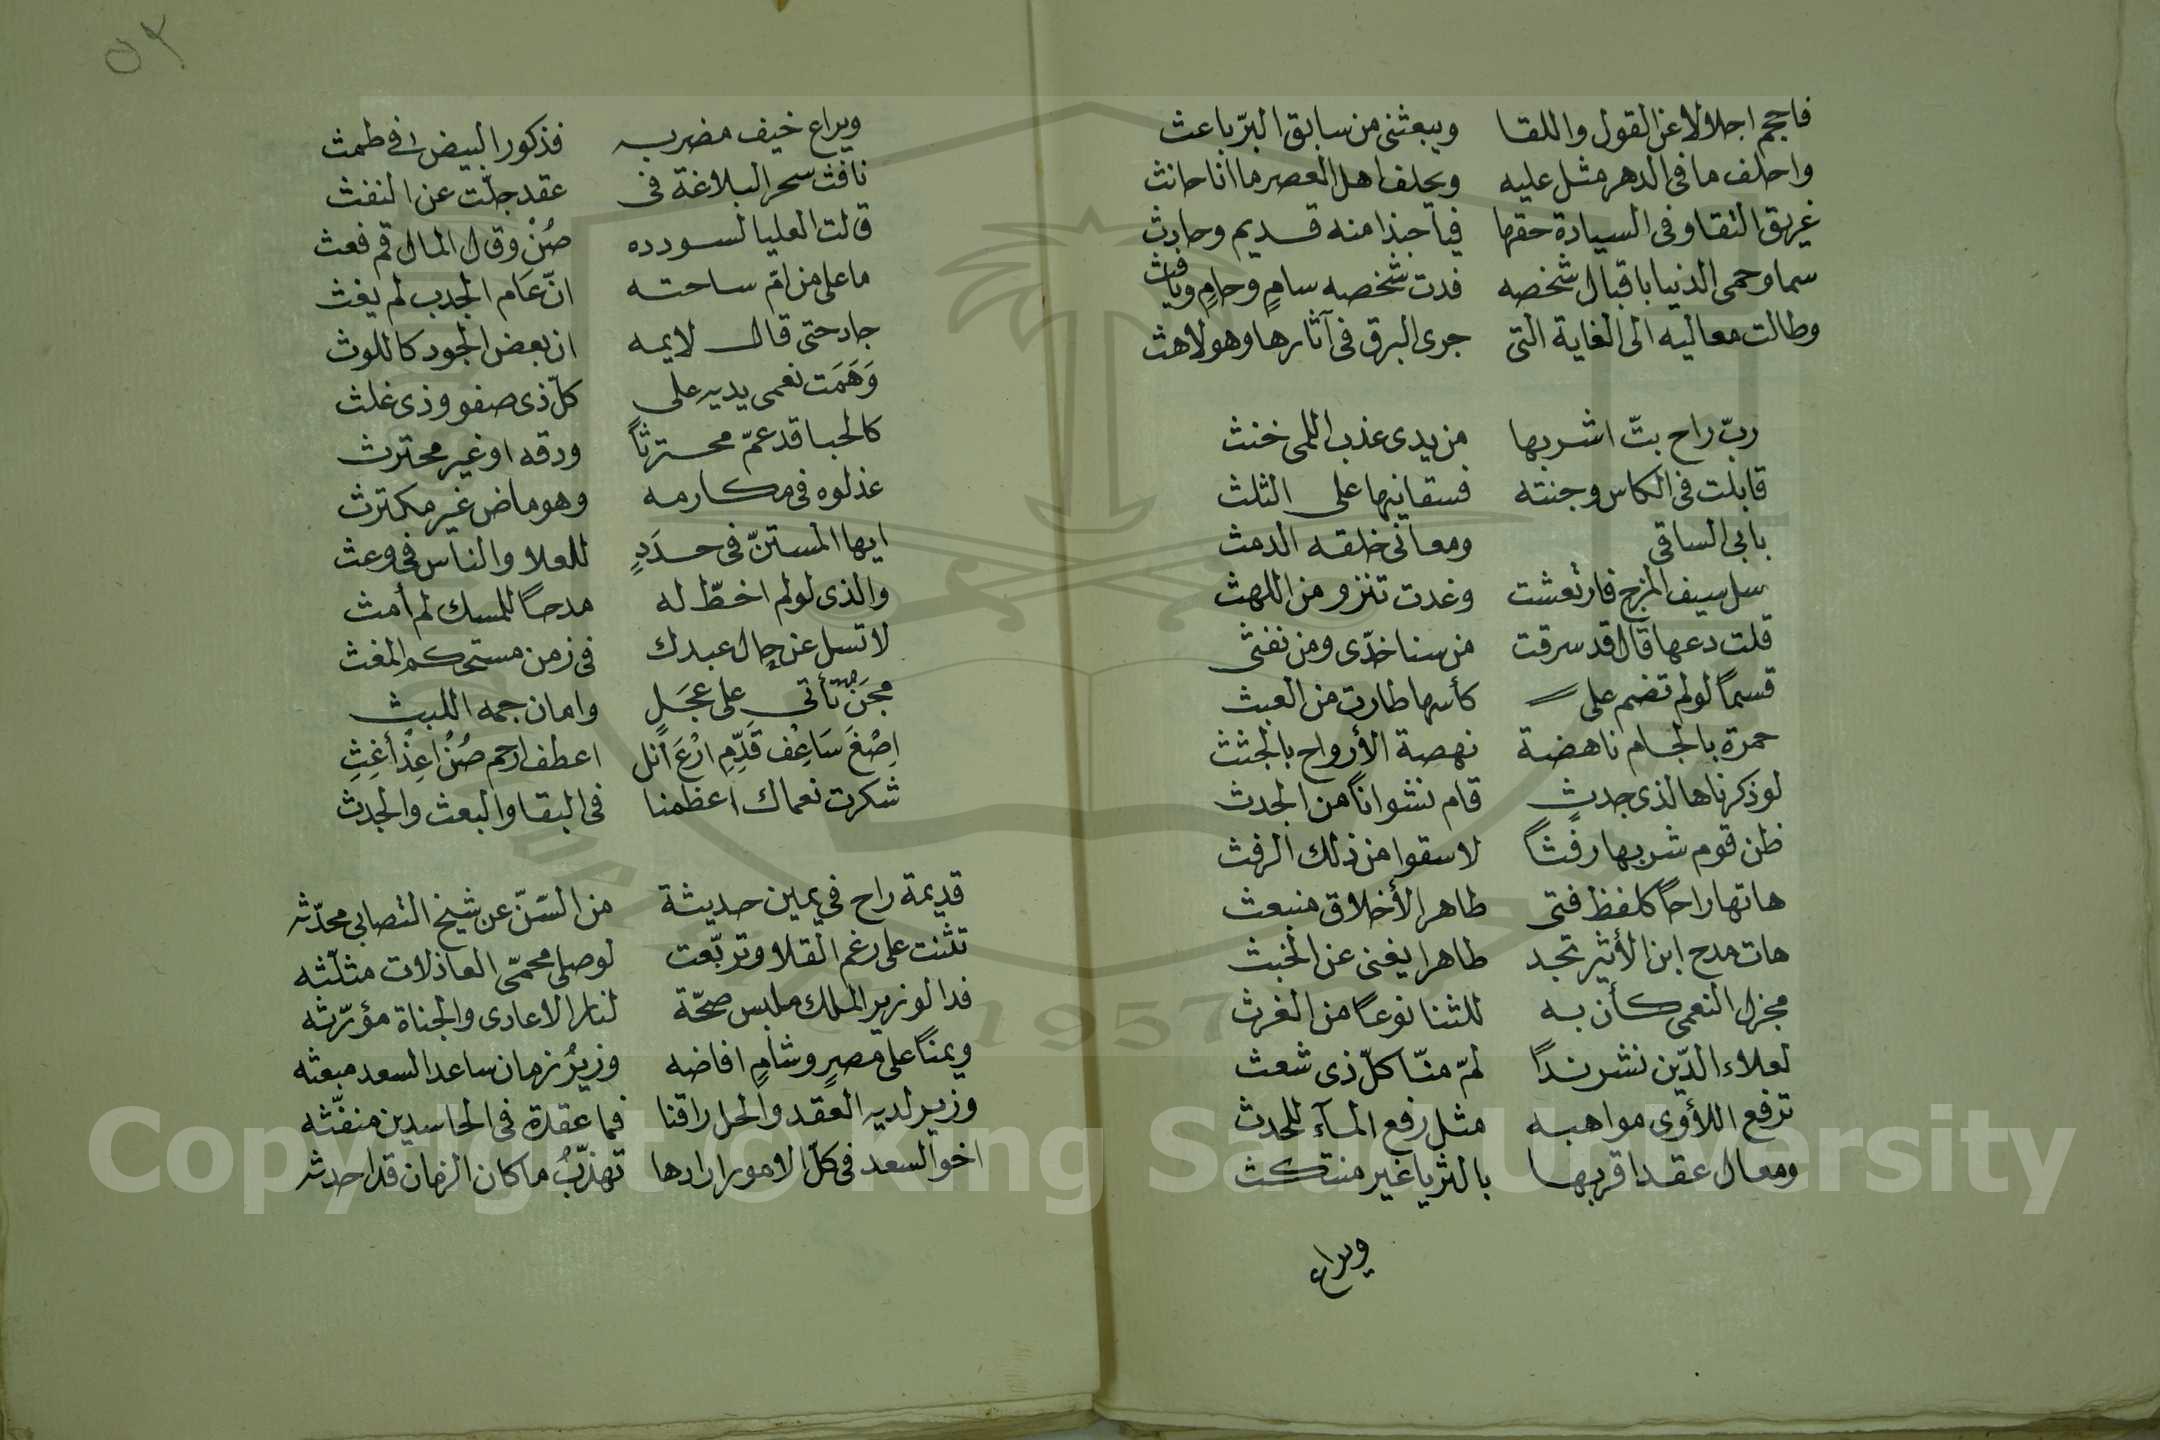 فاحجم اجلالا عن القول واللقا ويبعثنى من سابق البرّ باعث
واحلف ما فى الدهر مثل عليه ويحلف اهل العصر ما انا حانث
غريق التقا وفى السيادة حقها فيا حبذا منه قديم وحادث
سما وحمى الدنيا باقبال شخصه فدت شخصه سامٍ وحامٍ ويافث
وطالت معاليه الى الغاية التى جرى البرق فى آثارها وهو لاهث
ربّ راح بتّ اشربها من يدى عذب اللمى خنث
قابلت فى الكاس وجنته فسقانيها على الثلث
بابى الساقى ومعانى خلقه الدمث
سل سيف المزج فارتعشت وغدت تنزو من اللهث
قلت دعها قال قد سرقت من سنا خدّى ومن نفثى
قسماً لولم تضم على كأسها طارت من العبث
حمرة بالجام ناهضة نهضة الأرواح بالجثث
لو ذكرناها لذى جدثٍ قام نشواناً من الجدث
ظن قوم شربها رفثاً لا سقوا من ذلك الرفث
هاتها راحاً كلفظ فتى طاهر الأخلاق منبعث
هات مدح ابن الأثير تجد طاهرا يغنى عن الخبث
مجزل النعمى كأن به للثنا نوعاً من الغرث
لعلاء الدّين نشر ندًا لمّ منّا كلّ ذى شعث
ترفع اللأوى مواهبه مثل رفع المآء للحدث
ومعال عقدا قربها بالثريا غير منتكث
ويراع
٥٢
ويراع خيف مضربه فذكور البيض فى طمث
نافث سحر البلاغة فى عقد جلّت عن النفث
قالت العليا لسودده صُنْ وقال المال قم فعث
ما على من امّ ساحته انّ عَام الجدب لم يغث
جاد حتى قال لايمه ان بعض الجود كاللوث
وَهَمَت نعمى يديه على كلّ ذى صفو وذى غلث
كالحبا قد عمّ محترثاً ودقه او غير محترث
عذلوه فى مكارمه وهو ماض غير مكترث
ايها المستنّ فى جدَدٍ للعلا والناس فى وعث
والذى لولم اخطّ له مدحاً للمسك لم أمث
لا تسل عن حال عبدك فى زمن مستحكم المغث
محِنٌ تأتى على عجَلٍ وامان جمه اللبث
اِصْغَ سَاعِف قَدِّمِ ارْعَ أنل اعطف ارحم صُنْ اعِذْ أغِثِ
شكرت نعماك اعظمنا فى البقا والبعث والجدث
قديمة راح فى يمين حديثة من السّنّ عن شيخ التصابى محدّثه
تثنت على رغم القلا وتربّعت لوصلى محمّى العاذلات مثلّثه
فدا لوزير الملك ملبس صحّة لنار الاعادى والجناة مؤرّثه
ويمناً على مصرٍ وشامٍ افاضه وزيرُ زمان ساعد السعد مبعثه
وزير لديه العقد والحل راقنا فما عقدة فى الحاسدين منفّثه
اخو السعد فى كلّ الامور ارادها تهذّبُ ما كان الزمان قد احدثه
Copyright © King Saud University
1957